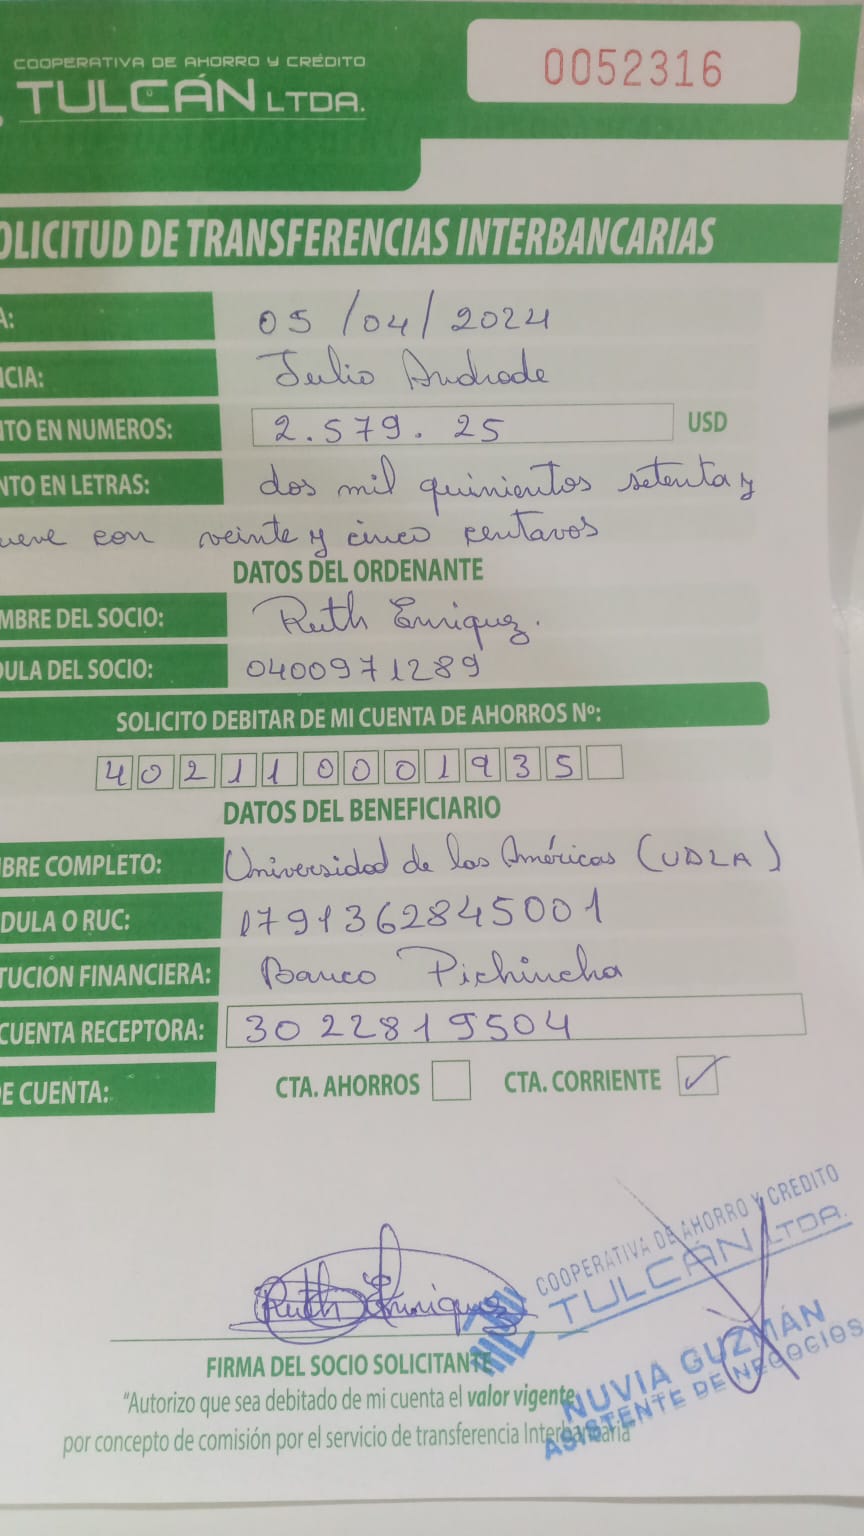 COOPERATIVA DE AHORRO Y CRÉDITO
TULCÁN LTDA.
0052316
OLICITUD DE TRANSFERENCIAS INTERBANCARIAS
A: 05/04/2024
NCIA: Julio Andrade
NTO EN NUMEROS: 2.579.25 USD
NTO EN LETRAS: dos mil quinientos setenta y
ueve con veinte y cinco centavos
DATOS DEL ORDENANTE
MBRE DEL SOCIO: Ruth Enriquez.
DULA DEL SOCIO: 0400971289
SOLICITO DEBITAR DE MI CUENTA DE AHORROS Nº:
402110001935
DATOS DEL BENEFICIARIO
BRE COMPLETO: Universidad de las Américas (UDLA)
DULA O RUC: 1791362845001
TUCION FINANCIERA: Banco Pichincha
CUENTA RECEPTORA: 3022819504
E CUENTA: CTA. AHORROS CTA. CORRIENTE ✓
COOPERATIVA DE AHORRO Y CRÉDITO
TULCÁN LTDA.
Ruth Enriquez
NUVIA GUZMÁN
ASISTENTE DE NEGOCIOS
FIRMA DEL SOCIO SOLICITANTE
"Autorizo que sea debitado de mi cuenta el valor vigente,
por concepto de comisión por el servicio de transferencia Interbancaria"